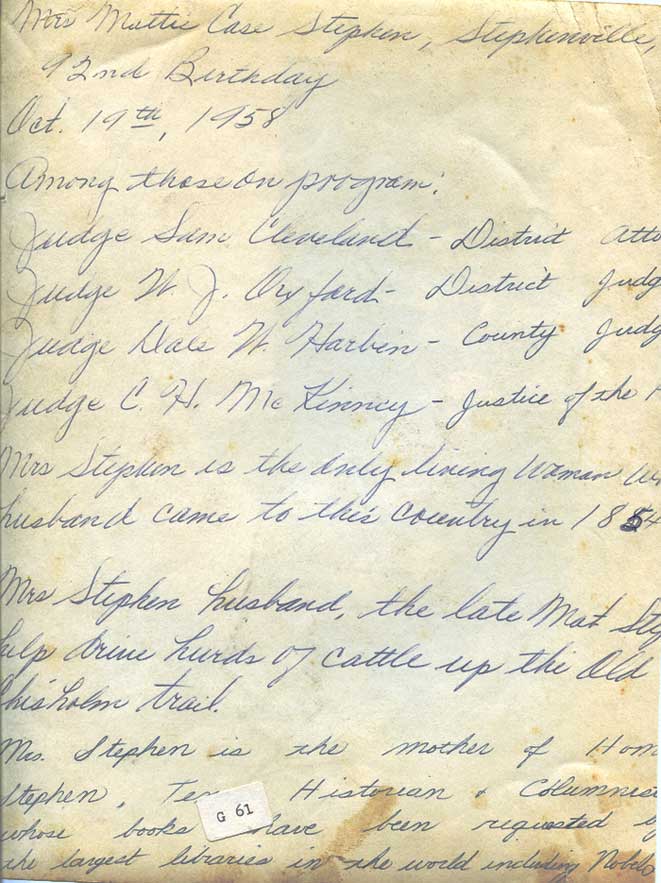 Mrs Mattie Case Stephen, Stephenville,
92nd Birthday
Oct. 19th, 1958
Among those on program:
Judge Sam Cleveland - District Atto
Judge W. J. Oxford - District Judg
Judge Dale W. Harbin - County Judg
Judge C. H. McKinney - Justice of the P
Mrs Stephen is the only living Woman
husband came to this Country in 1854
Mrs Stephen husband, the late Mat Step
help drive hurds of cattle up the Old
Chisholm trail.
Mrs. Stephen is the mother of Hom
Stephen, Historian & Columnist
whose books have been requested
the largest libraries in the world including Nobels
G 61